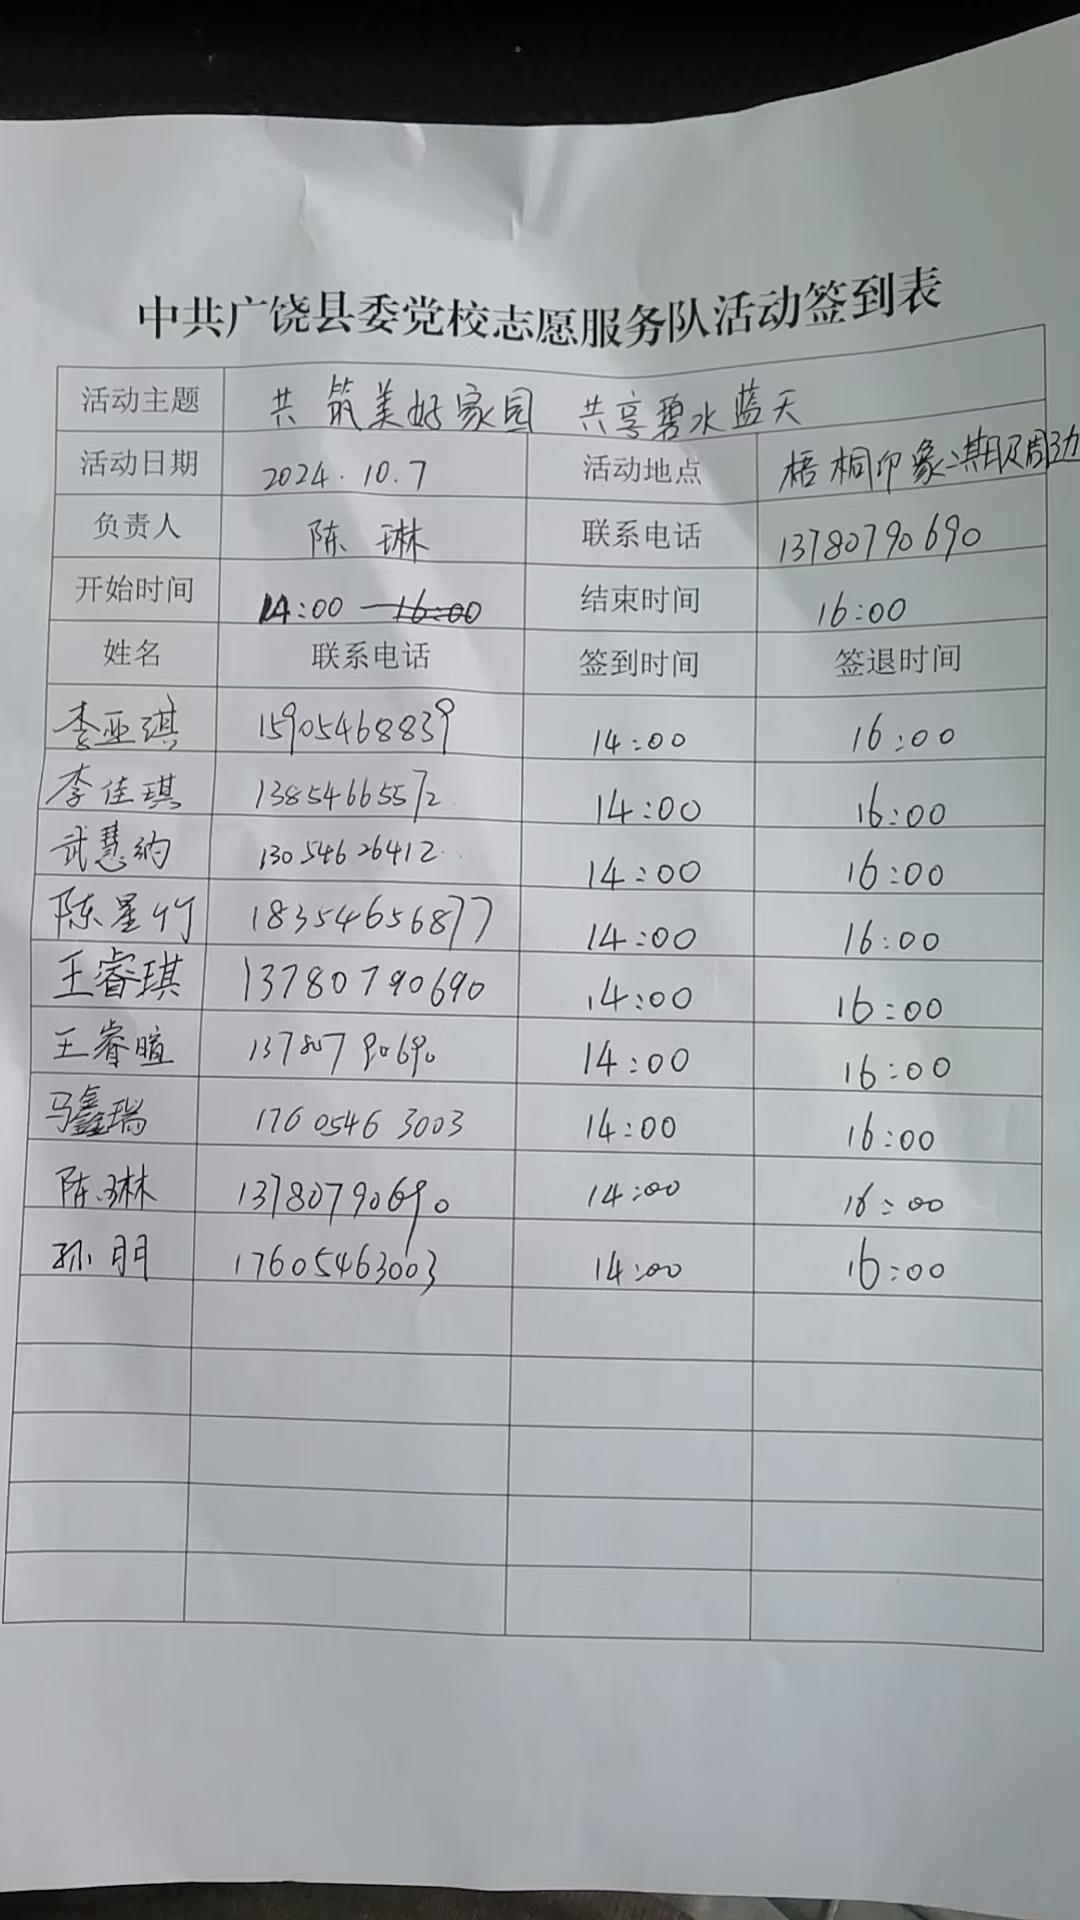 中共广饶县委党校志愿服务队活动签到表
活动主题 共筑美好家园 共享碧水蓝天
活动日期 2024.10.7 活动地点 梧桐印象二期及周边
负责人 陈琳 联系电话 13780790690
开始时间 14:00 —16:00 结束时间 16:00
姓名 联系电话 签到时间 签退时间
李亚琪 15905468839 14:00 16:00
李佳琪 13854665572 14:00 16:00
武慧纳 13054626412 14:00 16:00
陈星竹 18354656877 14:00 16:00
王睿琪 13780790690 14:00 16:00
王睿暄 13780790690 14:00 16:00
马鑫瑞 17605463003 14:00 16:00
陈琳 13780790690 14:00 16:00
孙朋 17605463003 14:00 16:00